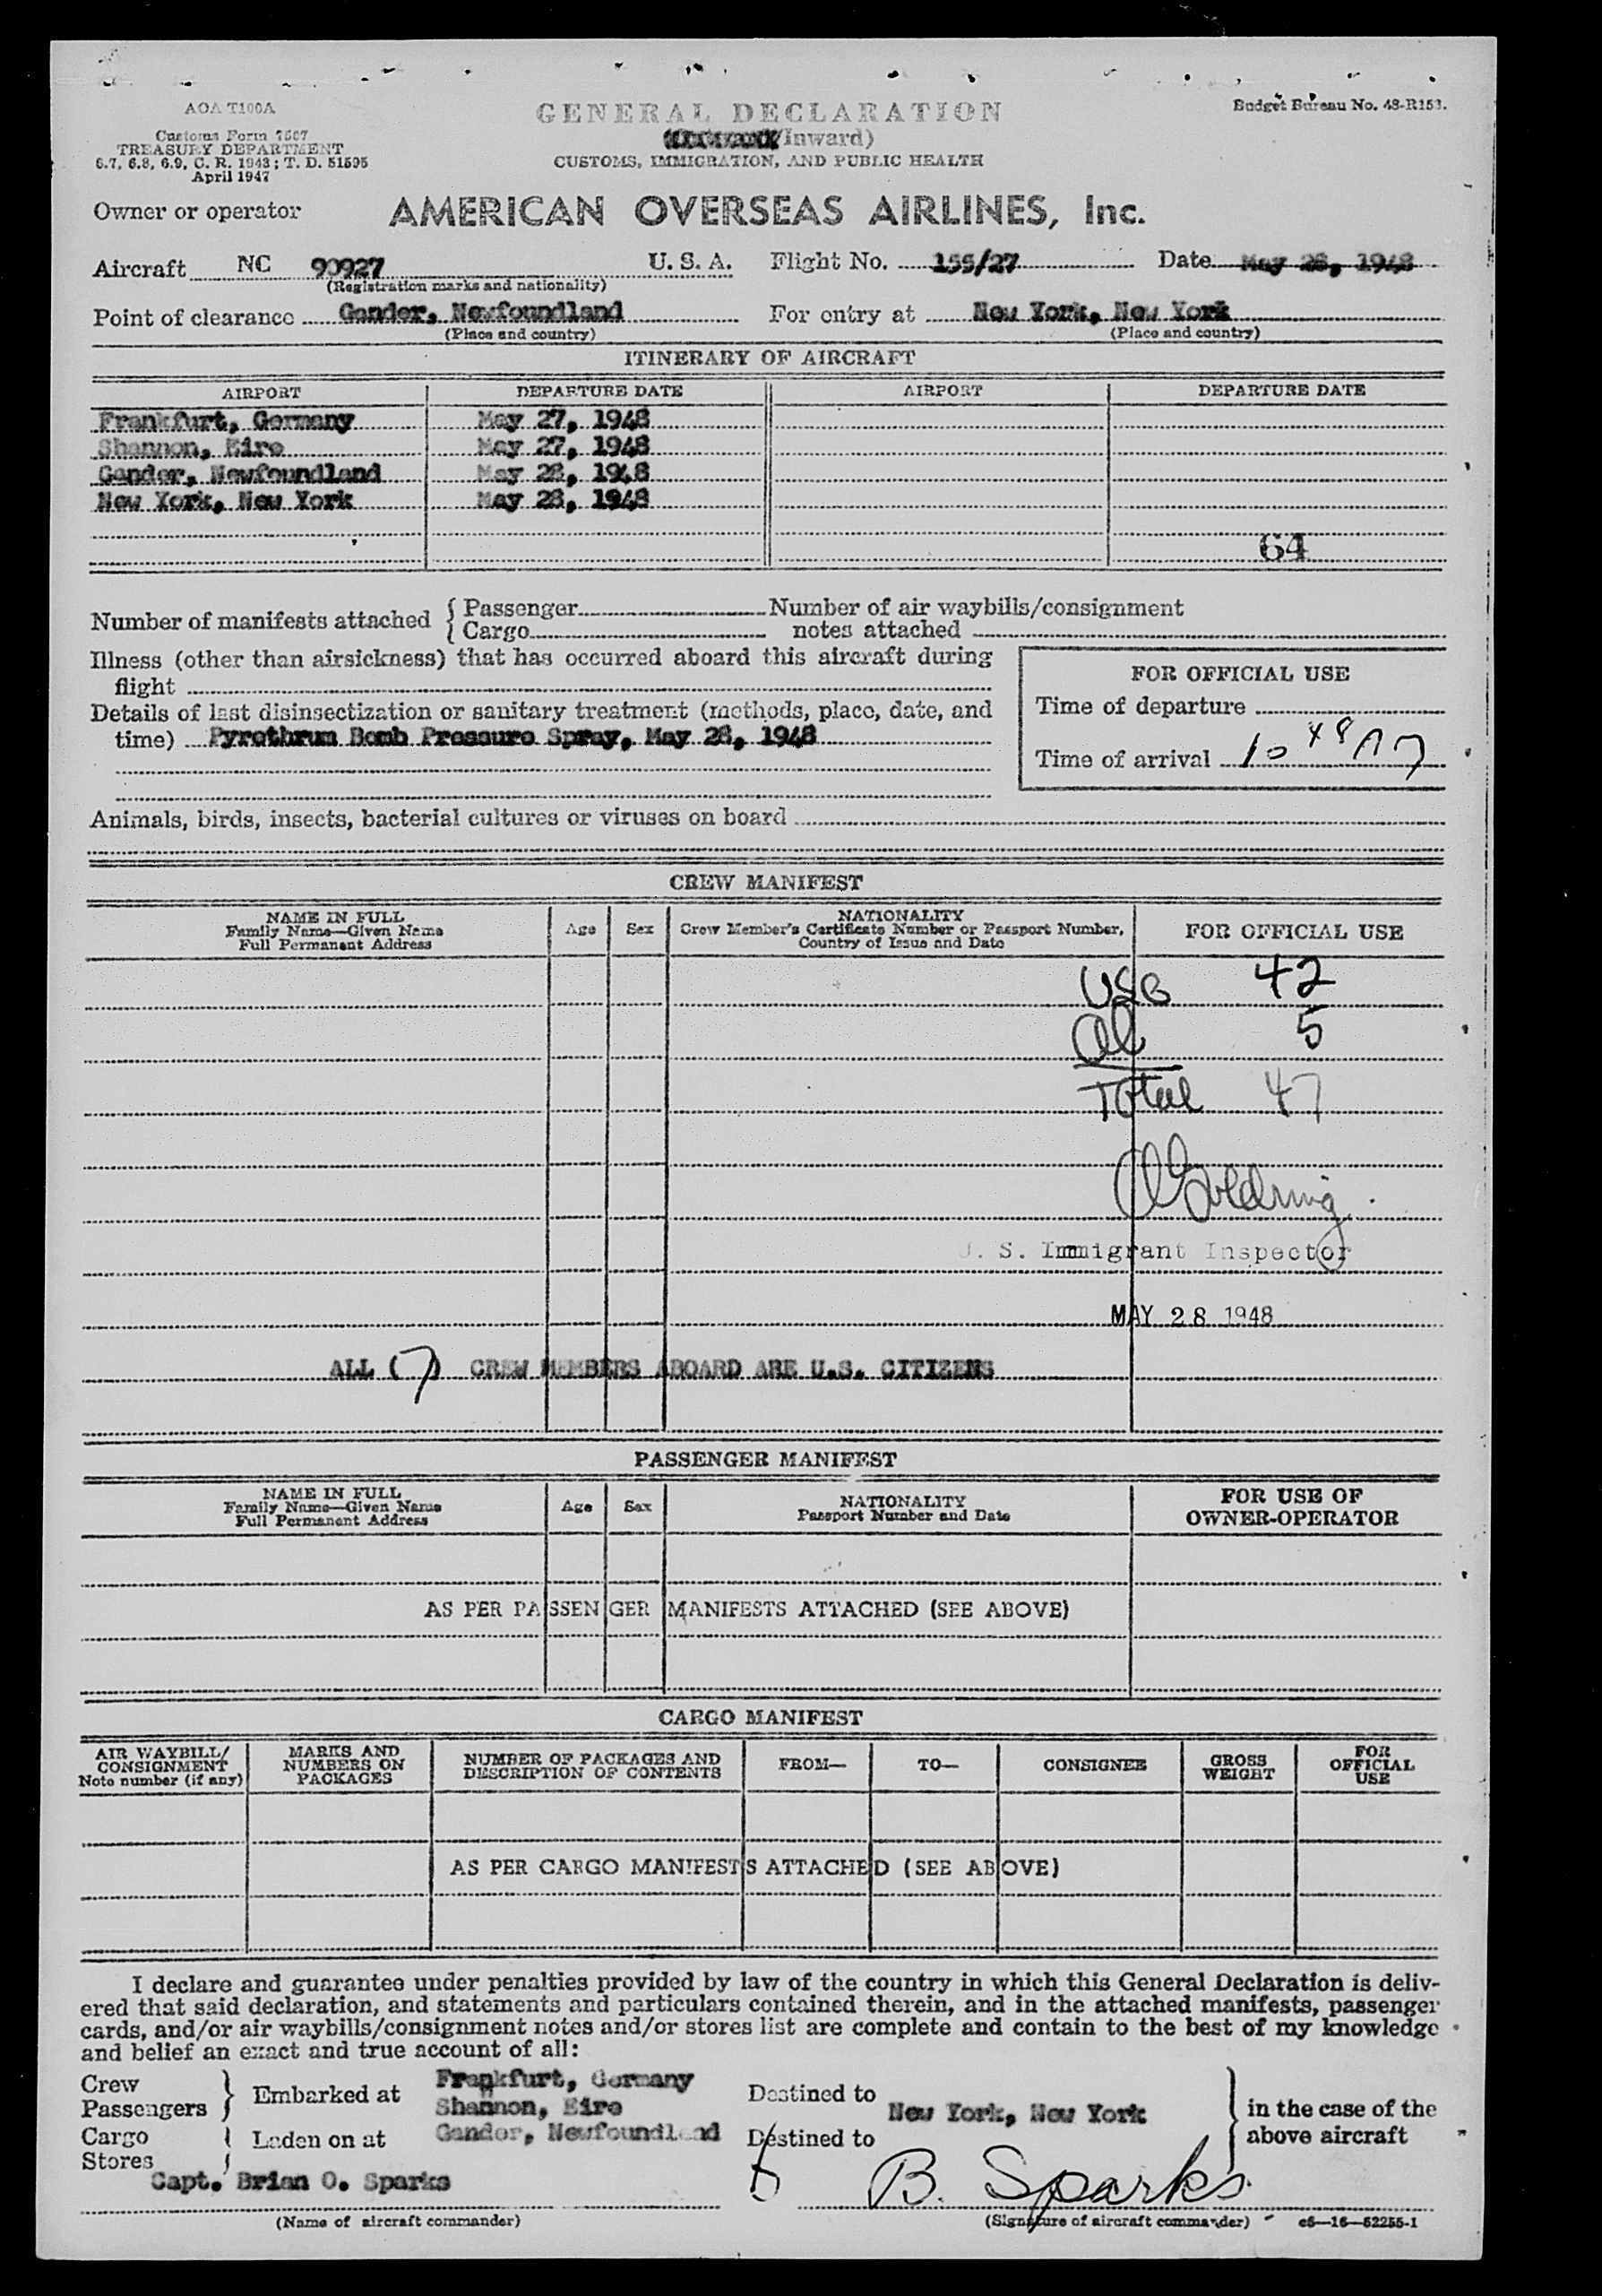 AOA T100A
Customs Form 7507
TREASURY DEPARTMENT
6.7, 6.8, 6.9, C. R. 1943; T. D. 51595
April 1947
GENERAL DECLARATION
/Inward)
CUSTOMS, IMMIGRATION, AND PUBLIC HEALTH
Budget Bureau No. 48-R153.
Owner or operator AMERICAN OVERSEAS AIRLINES, Inc.
Aircraft NC 90927 U. S. A. Flight No. 155/27 Date May 28, 1948
(Registration marks and nationality)
Point of clearance Gander, Newfoundland For entry at New York, New York
(Place and country) (Place and country)
ITINERARY OF AIRCRAFT
AIRPORT DEPARTURE DATE AIRPORT DEPARTURE DATE
Frankfurt, Germany May 27, 1948
Shannon, Eire May 27, 1948
Gander, Newfoundland May 28, 1948
New York, New York May 28, 1948
64
Number of manifests attached { Passenger Number of air waybills/consignment
{ Cargo notes attached
Illness (other than airsickness) that has occurred aboard this aircraft during
flight
Details of last disinsectization or sanitary treatment (methods, place, date, and
time) Pyrethrum Bomb Pressure Spray, May 28, 1948
FOR OFFICIAL USE
Time of departure
Time of arrival 10 48
Animals, birds, insects, bacterial cultures or viruses on board
CREW MANIFEST
NAME IN FULL
Family Name—Given Name
Full Permanent Address
Age Sex
NATIONALITY
Crew Member's Certificate Number or Passport Number,
Country of Issue and Date
FOR OFFICIAL USE
USC 42
al 5
Total 47
Goldring
U. S. Immigrant Inspector
MAY 28 1948
ALL (7) CREW MEMBERS ABOARD ARE U.S. CITIZENS
PASSENGER MANIFEST
NAME IN FULL
Family Name—Given Name
Full Permanent Address
Age Sex
NATIONALITY
Passport Number and Date
FOR USE OF
OWNER-OPERATOR
AS PER PASSENGER MANIFESTS ATTACHED (SEE ABOVE)
CARGO MANIFEST
AIR WAYBILL/
CONSIGNMENT
Note number (if any)
MARKS AND
NUMBERS ON
PACKAGES
NUMBER OF PACKAGES AND
DESCRIPTION OF CONTENTS
FROM— TO— CONSIGNEE
GROSS
WEIGHT
FOR
OFFICIAL
USE
AS PER CARGO MANIFESTS ATTACHED (SEE ABOVE)
I declare and guarantee under penalties provided by law of the country in which this General Declaration is deliv-
ered that said declaration, and statements and particulars contained therein, and in the attached manifests, passenger
cards, and/or air waybills/consignment notes and/or stores list are complete and contain to the best of my knowledge
and belief an exact and true account of all:
Crew
Passengers } Embarked at
Cargo
Stores } Laden on at
Frankfurt, Germany
Shannon, Eire
Gander, Newfoundland
Destined to
Destined to
New York, New York
} in the case of the
above aircraft
Capt. Brian O. Sparks B. Sparks
(Name of aircraft commander) (Signature of aircraft commander) c6—16—52255-1